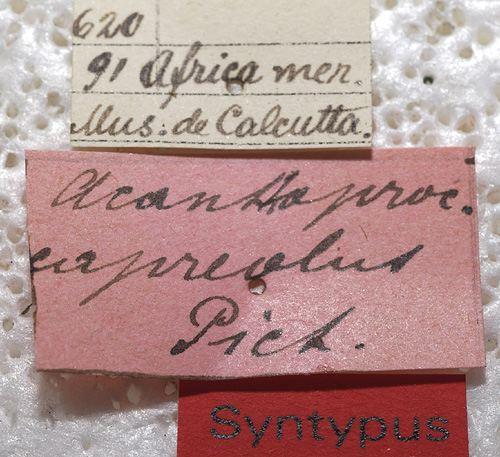 620
91 Africa mer.
Mus: de Calcutta.
Acanthoproc.
capreolus
Pict.
Syntypus